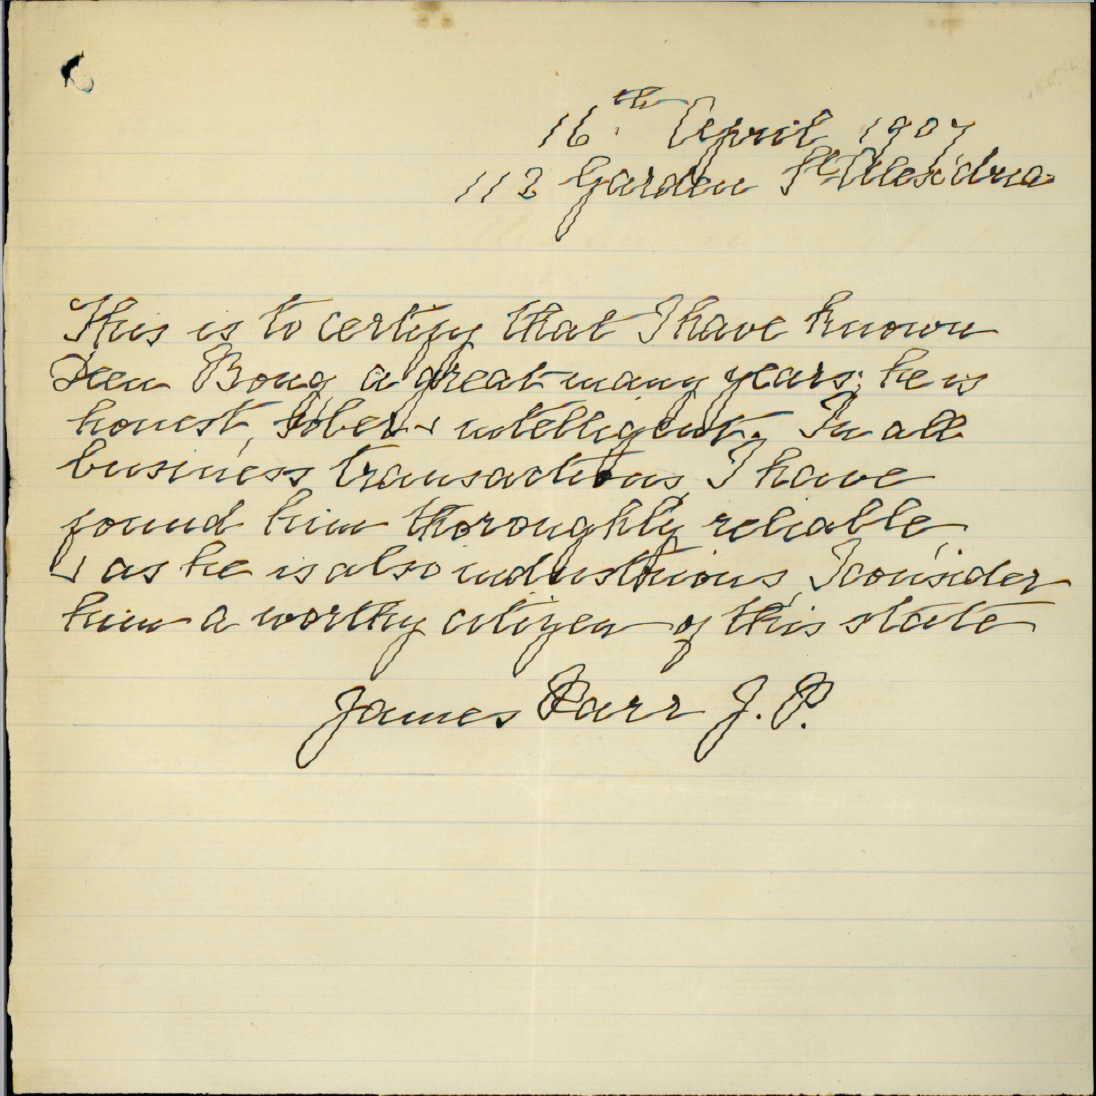 16th April 1907
112 Garden St Alex'dria
This is to certify that I have known
Deen Bong a great many years; he is
honest, sober & intelligent. In all
business transactions, I have
found him thoroughly reliable,
& as he is also industrious, I consider
him a worthy citizen of this state
James Parr J. P.